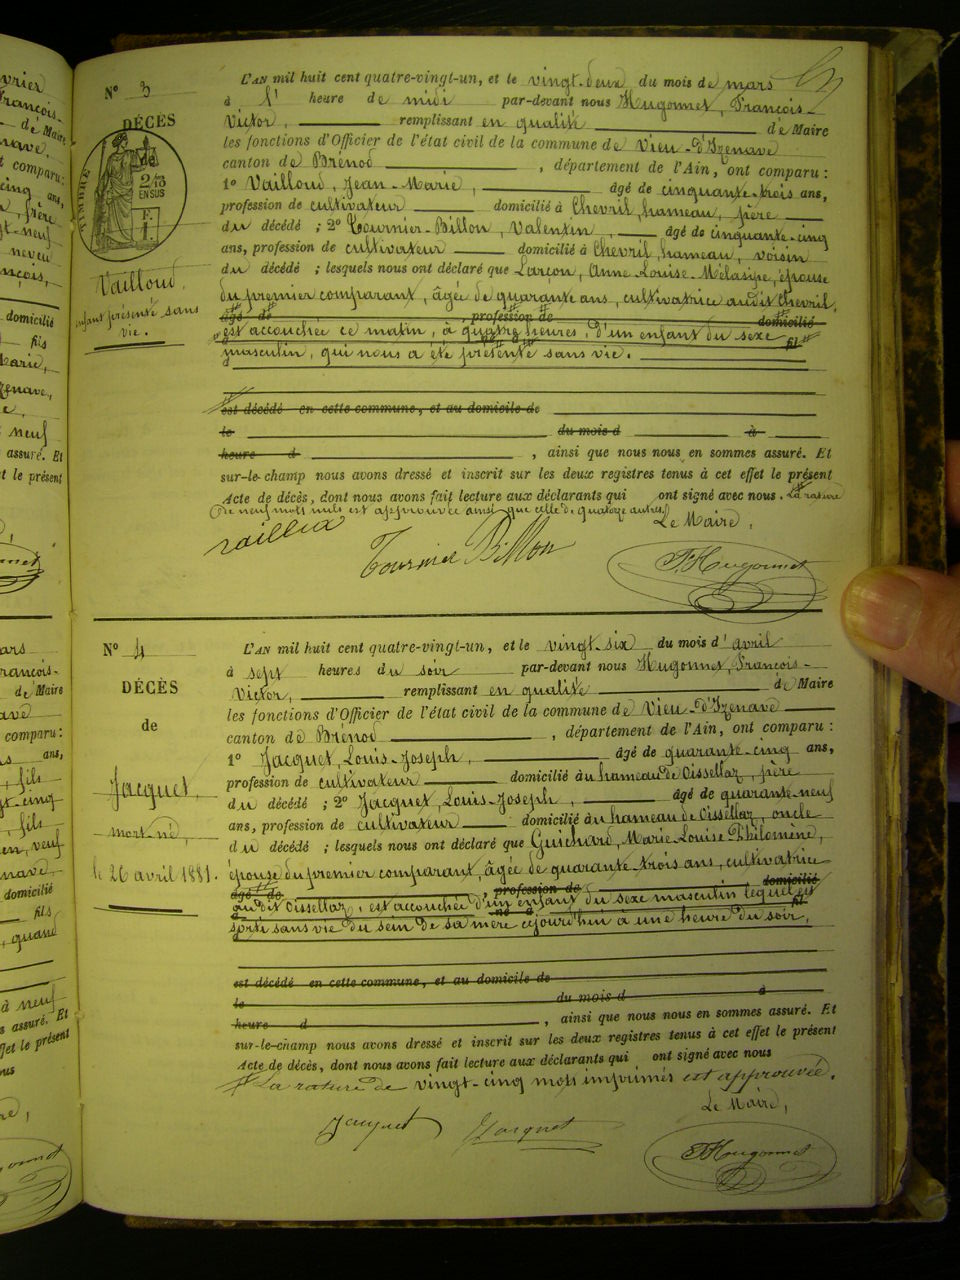 N° 3
DÉCÈS
de
TIMBRE
2/10
EN SUS
Vailloud,
enfant présenté sans
vie.
L'AN mil huit cent quatre-vingt-un, et le vingt-deux du mois de mars
à l' heure de midi par-devant nous Hugonnet, François-
Victor, remplissant en qualité de Maire
les fonctions d'Officier de l'état civil de la commune de Vieu-d'Izenave
canton de Brénod, département de l'Ain, ont comparu :
1° Vailloud, Jean-Marie, âgé de cinquante-trois ans,
profession de cultivateur domicilié à Chevril, hameau, père
du décédé ; 2° Tournier-Billon, Valentin, âgé de cinquante-cinq
ans, profession de cultivateur domicilié à Chevril, hameau, voisin
du décédé ; lesquels nous ont déclaré que Larçon, Anne-Louise-Mélanie, épouse
du premier comparant, âgée de quarante ans, cultivatrice audit Chevril,
âgé de , profession de domicilié
est accouchée ce matin, à quatre heures, d'un enfant du sexe
fil
masculin, qui nous a été présenté sans vie.
est décédé en cette commune, et au domicile de
le du mois d à
heure d , ainsi que nous nous en sommes assuré. Et
sur-le-champ nous avons dressé et inscrit sur les deux registres tenus à cet effet le présent
Acte de décès, dont nous avons fait lecture aux déclarants qui ont signé avec nous. La rature
de neuf mots nuls est approuvée ainsi que celle de quatorze autres.
Le Maire,
Tournier Billon
F. Hugonnet
N° 4
DÉCÈS
de
Jacquet,
mort-né,
le 26 avril 1881.
L'AN mil huit cent quatre-vingt-un, et le vingt-six du mois d'avril
à sept heures du soir par-devant nous Hugonnet, François-
Victor, remplissant en qualité de Maire
les fonctions d'Officier de l'état civil de la commune de Vieu-d'Izenave
canton de Brénod, département de l'Ain, ont comparu :
1° Jacquet, Louis-Joseph, âgé de quarante-cinq ans,
profession de cultivateur domicilié au hameau de Cissellaz, père
du décédé ; 2° Jacquet, Louis-Joseph, âgé de quarante-neuf
ans, profession de cultivateur domicilié au hameau de Cissellaz, oncle
du décédé ; lesquels nous ont déclaré que Guichard, Marie-Louise-Philomène,
épouse du premier comparant, âgée de quarante-trois ans, cultivatrice
âgé de , profession de domicilié
audit Cissellaz, est accouchée d'un enfant du sexe masculin lequel est
né à fil
sorti sans vie du sein de sa mère cejourd'hui à une heure du soir,
est décédé en cette commune, et au domicile de
le du mois d à
heure d , ainsi que nous nous en sommes assuré. Et
sur-le-champ nous avons dressé et inscrit sur les deux registres tenus à cet effet le présent
Acte de décès, dont nous avons fait lecture aux déclarants qui ont signé avec nous
La rature de vingt-cinq mots imprimés est approuvée.
Le Maire,
Jacquet Jacquet
F. Hugonnet